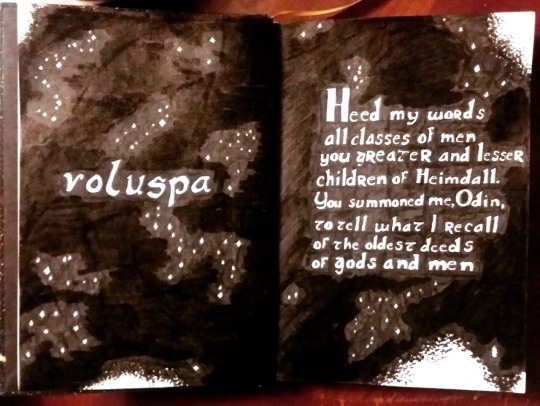 voluspa
Heed my words
all classes of men
you greater and lesser
children of Heimdall.
You summoned me, Odin,
to tell what I recall
of the oldest deeds
of gods and men